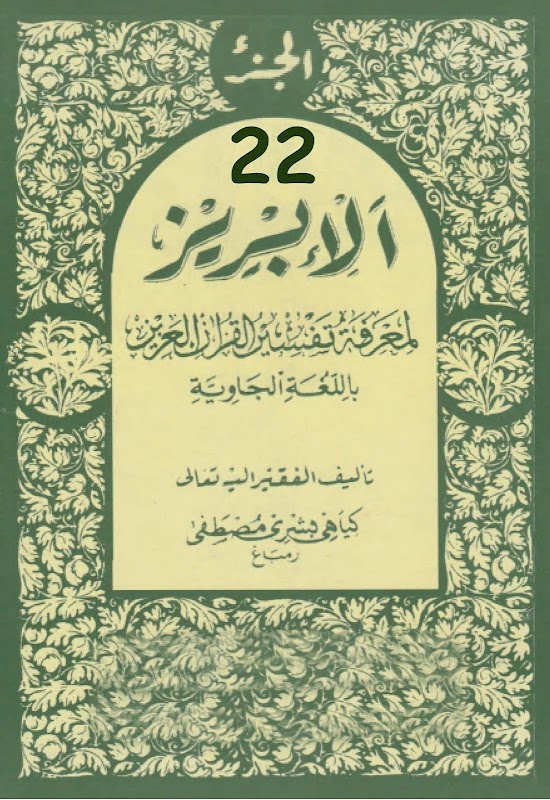 الجزء
22
اَلْإِبْرِيْز
لِمَعْرِفَةِ تَفْسِيْرِ الْقُرْآنِ الْعَزِيْزِ
بِاللُّغَةِ الْجَاوِيَّةِ
تأليف الفقير اليه تعالى
كياهى بشرى مُصْطَفىٰ
رمباغ